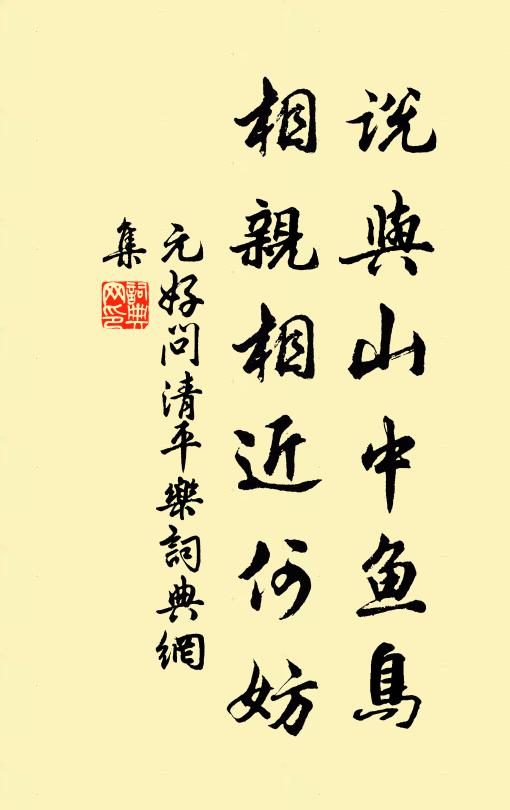 説與山中鱼鳥
相親相近何妨
元好问清平樂詞典網
集
詞典
网印